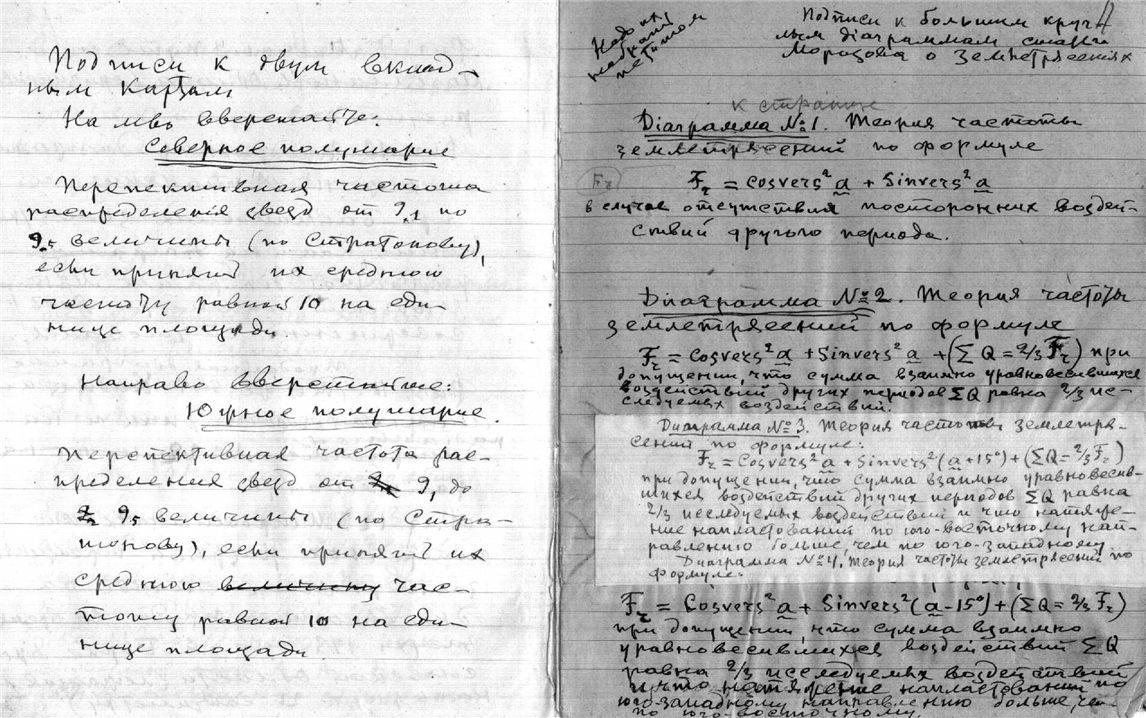 Подписи к двум вклад-
ным картам
На лево вверстайте:
Северное полушарие
Перспективная частота
распределения звезд от 9,1 по
9,5 величины (по Стратонову),
если принять их среднюю
частоту равной 10 на еди-
нице площади.
Направо вверстайте:
Южное полушарие.
Перспективная частота рас-
пределения звезд от 9,1 до
9,5 величины (по Стра-
тонову), если принять их
среднюю величину час-
тоту равной 10 на еди-
нице площади.
Надо их
петитом
Подписи к большим круг-
лым діаграммам статьи
Морозова о Землетрясениях
к странице
Діаграмма №1. Теория частоты
землетрясений по формуле
Fz
Fz = Cosvers² a + Sinvers² a
в случае отсутствия посторонних воздей-
ствий другого периода.
Диаграмма №2. Теория частоты
землетрясений по формуле
Fz = Cosvers² a + Sinvers² a + (ΣQ = 2/3 Fz) при
допущении, что сумма взаимно уравновесившихся
воздействий других периодов ΣQ равна 2/3 ис-
следуемых воздействий.
Диаграмма №3. Теория частоты землетря-
сений по формуле:
Fz = Cosvers² a + Sinvers² (a + 15°) + (ΣQ = 2/3 Fz)
при допущении, что сумма взаимно уравновесив-
шихся воздействий других периодов ΣQ равна
2/3 исследуемых воздействий и что натяже-
ние напластований по юго-восточному нап-
равлению больше, чем по юго-западному
Диаграмма №4. Теория частоты землетрясений по
формуле:
Fz = Cosvers² a + Sinvers² (a - 15°) + (ΣQ = 2/3 Fz)
при допущении, что сумма взаимно
уравновесившихся воздействий ΣQ
равна 2/3 исследуемых воздействий
и что натяжение напластований по
юго-западному направлению больше, чем
по юго-восточному.